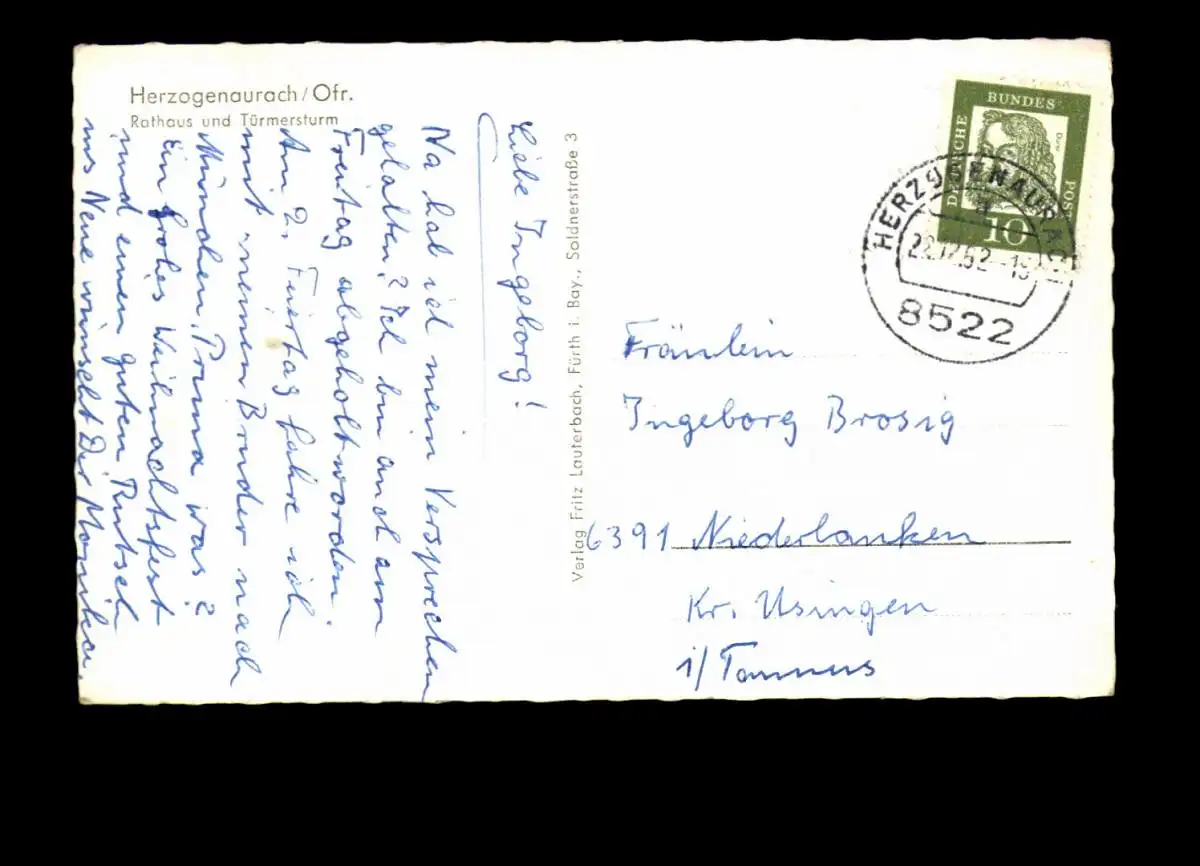 Herzogenaurach/Ofr.
Rathaus und Türmersturm
Liebe Ingeborg!
Na hab ich mein Versprechen
gehalten? Ich bin auch am
Freitag abgeholt worden.
Am 2. Feiertag fahre ich
mit meinem Bruder nach
München. Prima was?
Ein frohes Weihnachtsfest
und einen guten Rutsch
ins Neue wünscht Dir Monika.
Verlag Fritz Lauterbach, Fürth i. Bay., Soldnerstraße 3
DEUTSCHE
BUNDES
POST
Dürer
10
HERZOGENAURACH
8522
Fräulein
Ingeborg Brosig
6391 Niederlauken
Kr. Usingen
i/Taunus